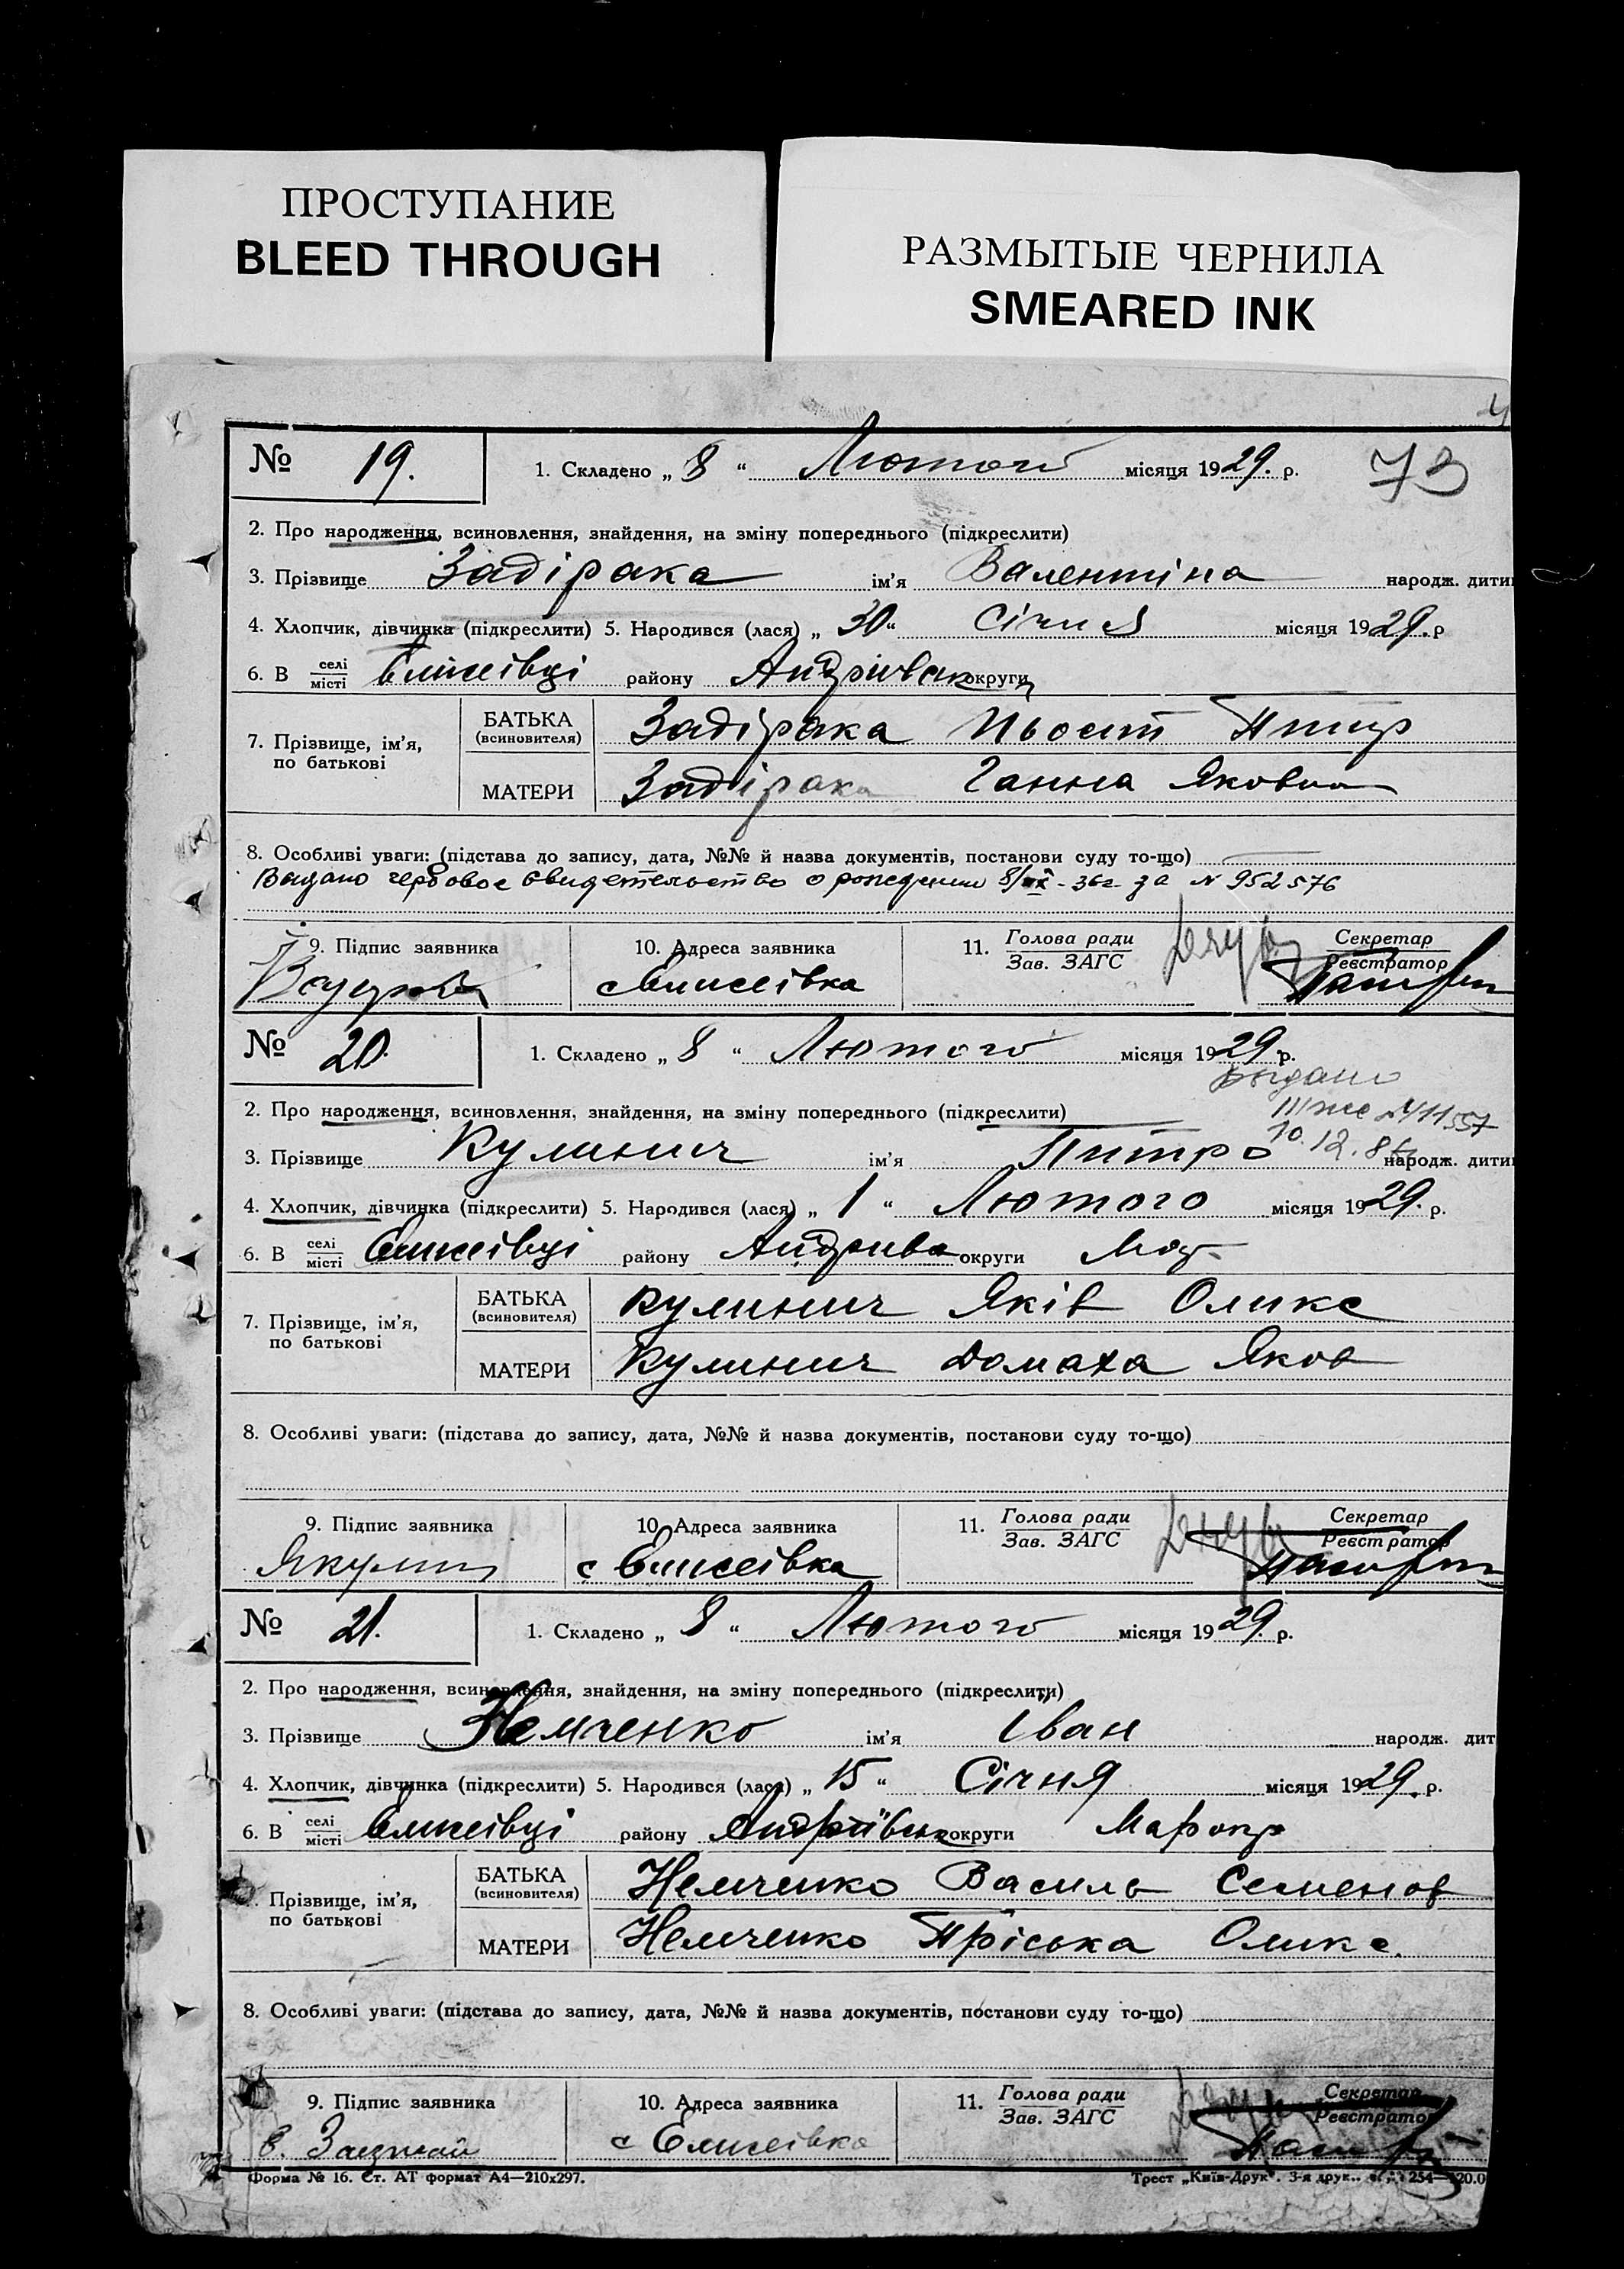 ПРОСТУПАНИЕ
BLEED THROUGH
РАЗМЫТЫЕ ЧЕРНИЛА
SMEARED INK
№ 19. 1. Складено „ 8 “ Лютого місяця 1929. р. 73
2. Про народження, всиновлення, знайдення, на зміну попереднього (підкреслити)
3. Прізвище Задірака ім’я Валентіна народж. дити
4. Хлопчик, дівчинка (підкреслити) 5. Народився (лася) „ 30 “ Січня місяця 1929. р
6. В селі місті Єлисеівці району округи
7. Прізвище, ім’я, по батькові
БАТЬКА (всиновителя) Задірака
МАТЕРИ Задірака Ганна Яковна
8. Особливі уваги: (підстава до запису, дата, №№ й назва документів, постанови суду то-що)
Выдано свидетельство о рождении за N 952576
9. Підпис заявника 10. Адреса заявника 11. Голова ради Зав. ЗАГС Секретар Реєстратор
с Єлисеівка
№ 20. 1. Складено „ 8 “ Лютого місяця 1929 р.
выдано
2. Про народження, всиновлення, знайдення, на зміну попереднього (підкреслити)
3. Прізвище Кулинич ім’я Питро народж. дити
4. Хлопчик, дівчинка (підкреслити) 5. Народився (лася) „ 1 “ Лютого місяця 1929. р.
6. В селі місті Єлисеівці району Андріива округи
7. Прізвище, ім’я, по батькові
БАТЬКА (всиновителя) Кулинич Яків Оликс
МАТЕРИ Кулинич Домаха Яков
8. Особливі уваги: (підстава до запису, дата, №№ й назва документів, постанови суду то-що)
9. Підпис заявника 10. Адреса заявника 11. Голова ради Зав. ЗАГС Секретар Реєстратор
с Єлисеівка
№ 21. 1. Складено „ 8 “ Лютого місяця 1929. р.
2. Про народження, всиновлення, знайдення, на зміну попереднього (підкреслити)
3. Прізвище Немченко ім’я Іван народж. дит
4. Хлопчик, дівчинка (підкреслити) 5. Народився (лася) „ 15 “ Січня місяця 1929. р.
6. В селі місті Єлисеівці району Андріївськ округи Марокр
Прізвище, ім’я, по батькові
БАТЬКА (всиновителя) Немченко Василь Семенов
МАТЕРИ Немченко Пріська Олике.
8. Особливі уваги: (підстава до запису, дата, №№ й назва документів, постанови суду то-що)
9. Підпис заявника 10. Адреса заявника 11. Голова ради Зав. ЗАГС Секретар Реєстратор
с Єлисеівка
Форма № 16. Ст. АТ формат А4—210х297. Трест „Київ-Друк“. 3-я друк.